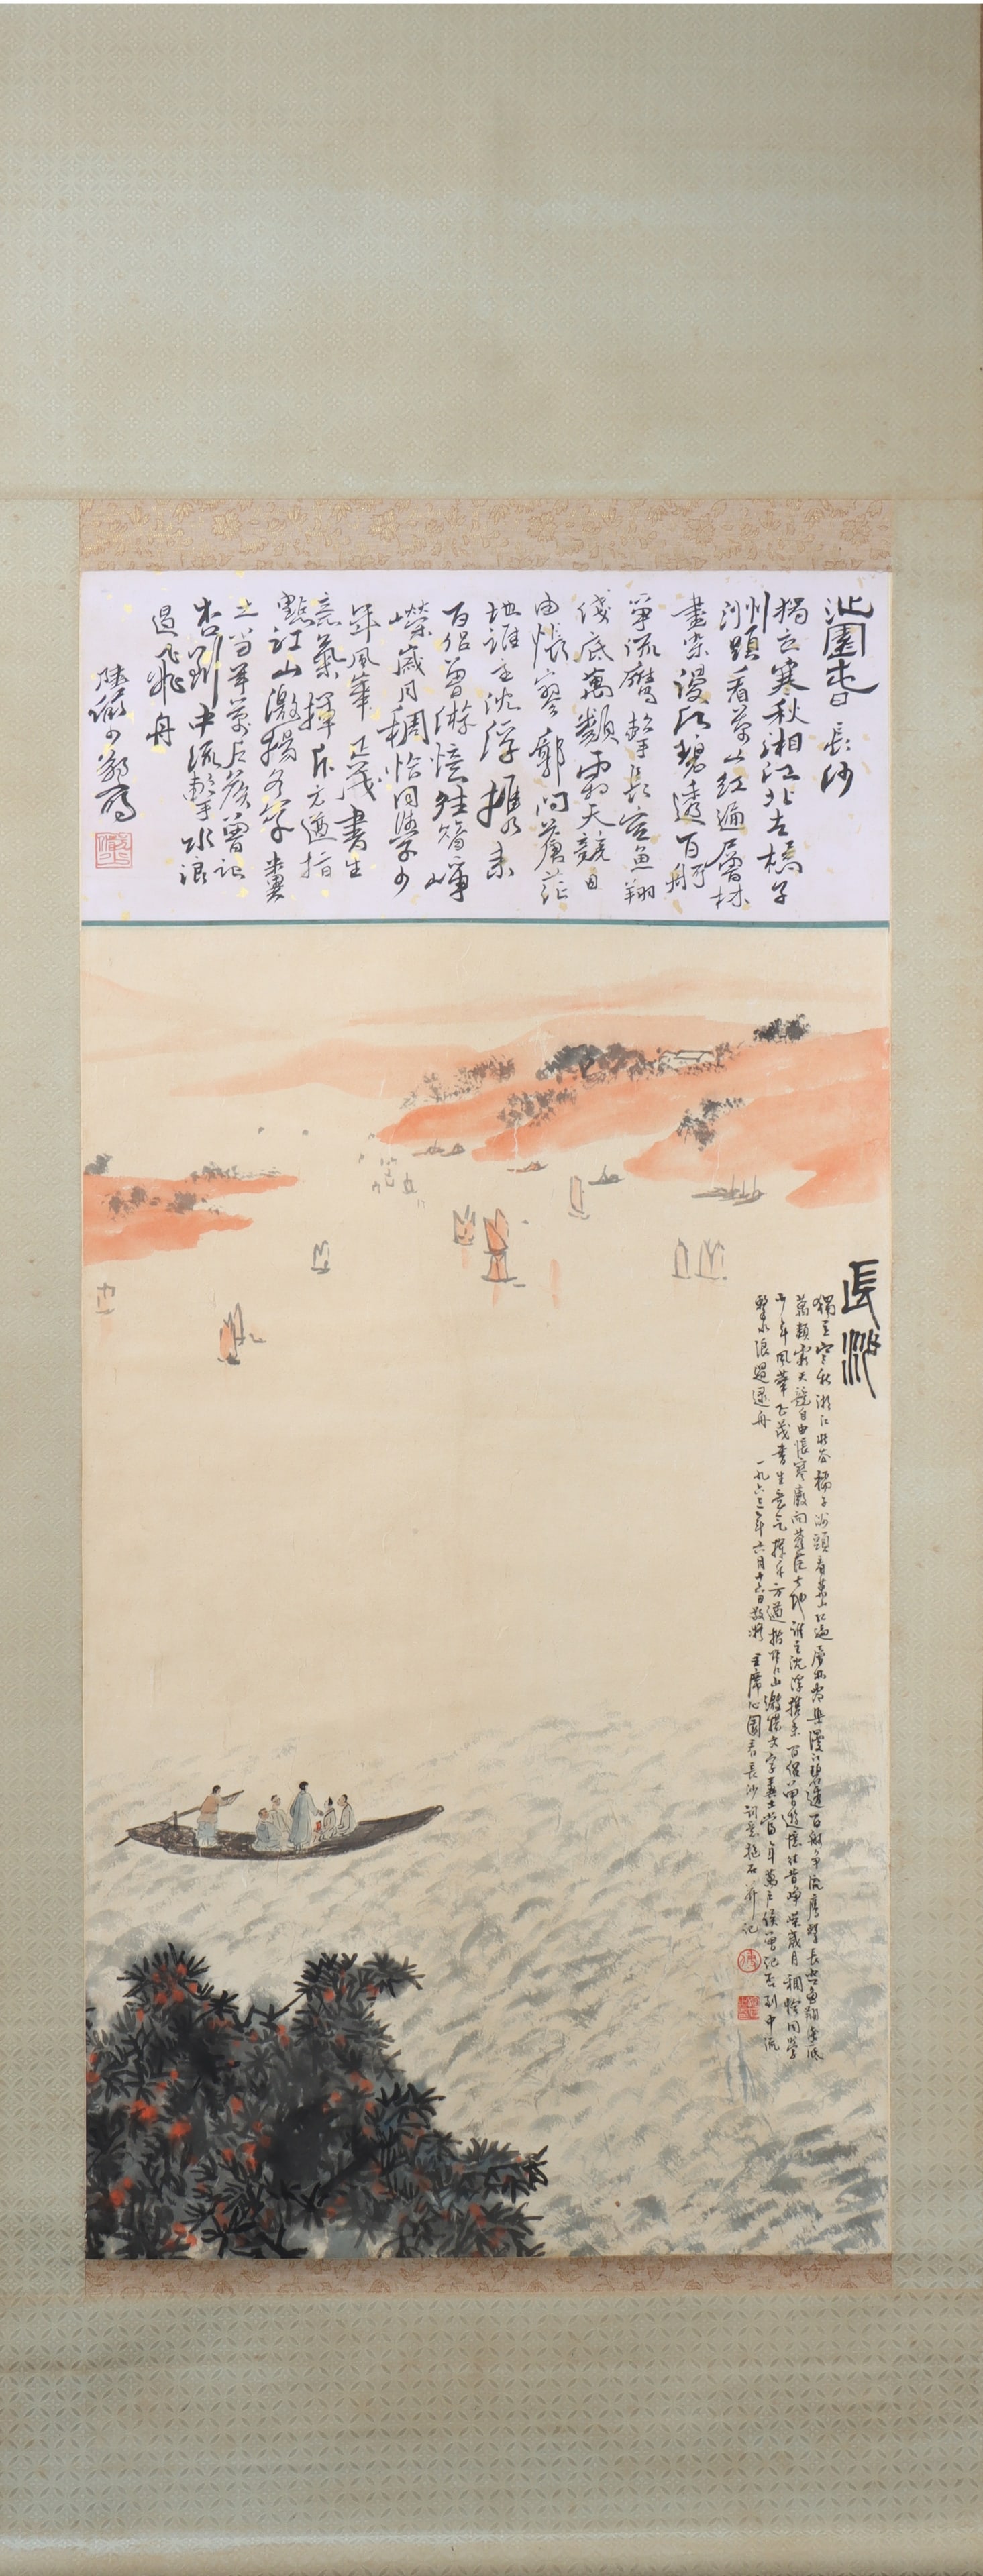 沁園春 長沙
獨立寒秋湘江北去橘子
洲頭看萬山红遍層林
盡染漫江碧透百舸
爭流鷹擊長空魚翔
淺底萬類霜天競自
由悵寥廓問蒼茫
地誰主沈浮攜來
百侶曾游憶往昔崢
嶸歲月稠恰同學少
年風華正茂書生
意氣揮斥方遒指
點江山激揚文字糞
土当年萬戶侯曾记
否到中流擊水浪
遏飛舟
陸儼少
長沙
獨立寒秋湘江北去橘子洲頭看萬山红遍層林盡染漫江碧透百舸爭流鷹擊長空魚翔淺底
萬類霜天競自由悵寥廓問蒼茫大地誰主沈浮攜來百侶曾遊憶往昔崢嶸歲月稠恰同學
少年風華正茂書生意气揮斥方遒指點江山激揚文字糞土當年萬戶侯曾記否到中流
擊水浪遏飛舟 一九六三年六月十六日敬寫 主席沁園春長沙詞意抱石并记